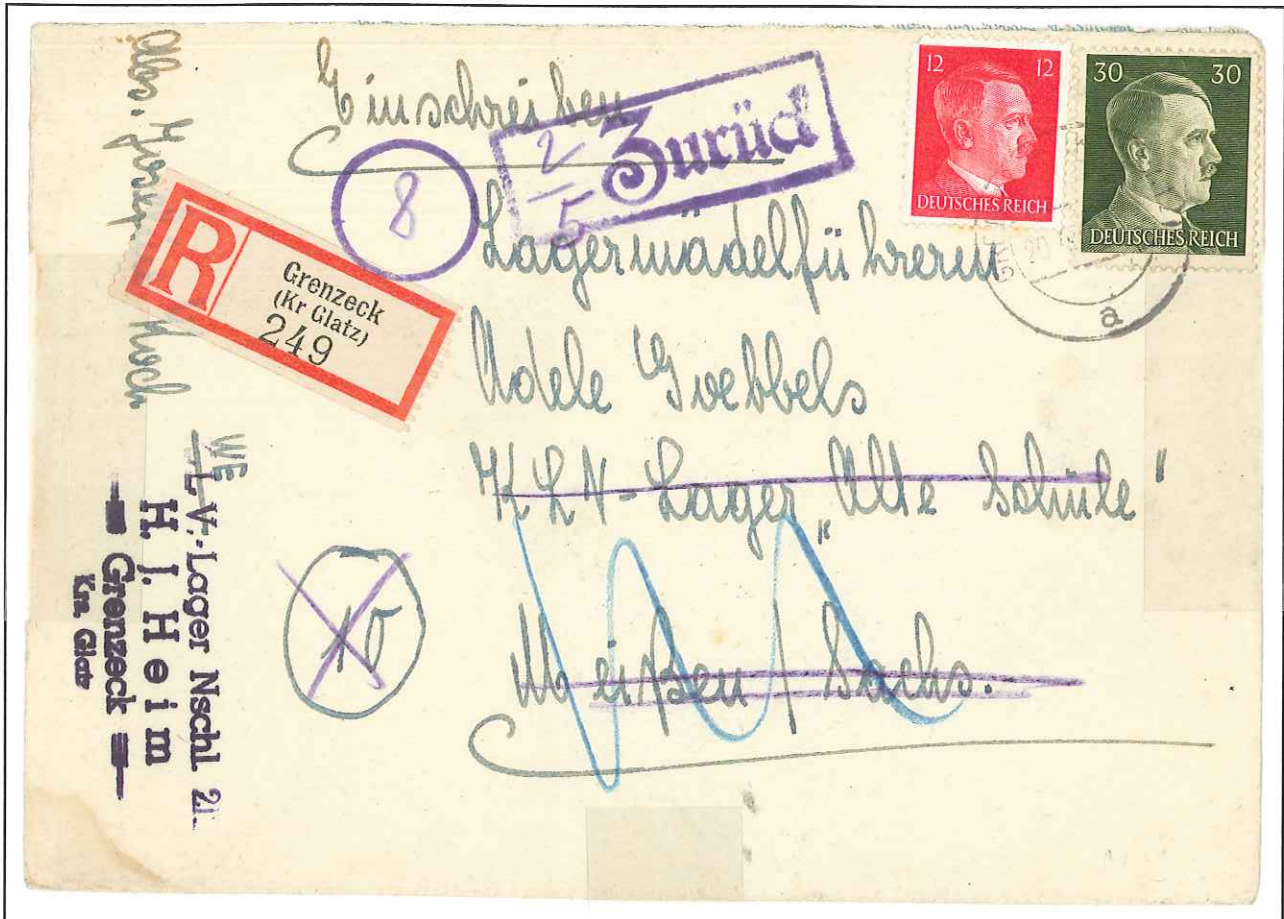 Einschreiben
Zurück
2
5
8
12 12
DEUTSCHES REICH
30 30
DEUTSCHES REICH
20
a
R
Grenzeck
(Kr Glatz)
249
Lagermädelführerin
Adele Goebbels
KLV-Lager „Alte Schule"
Meißen/Sachs.
10
Abs. Koch
WE
L V.-Lager Nschl 21.
H. J. Heim
Grenzeck
Krs. Glatz